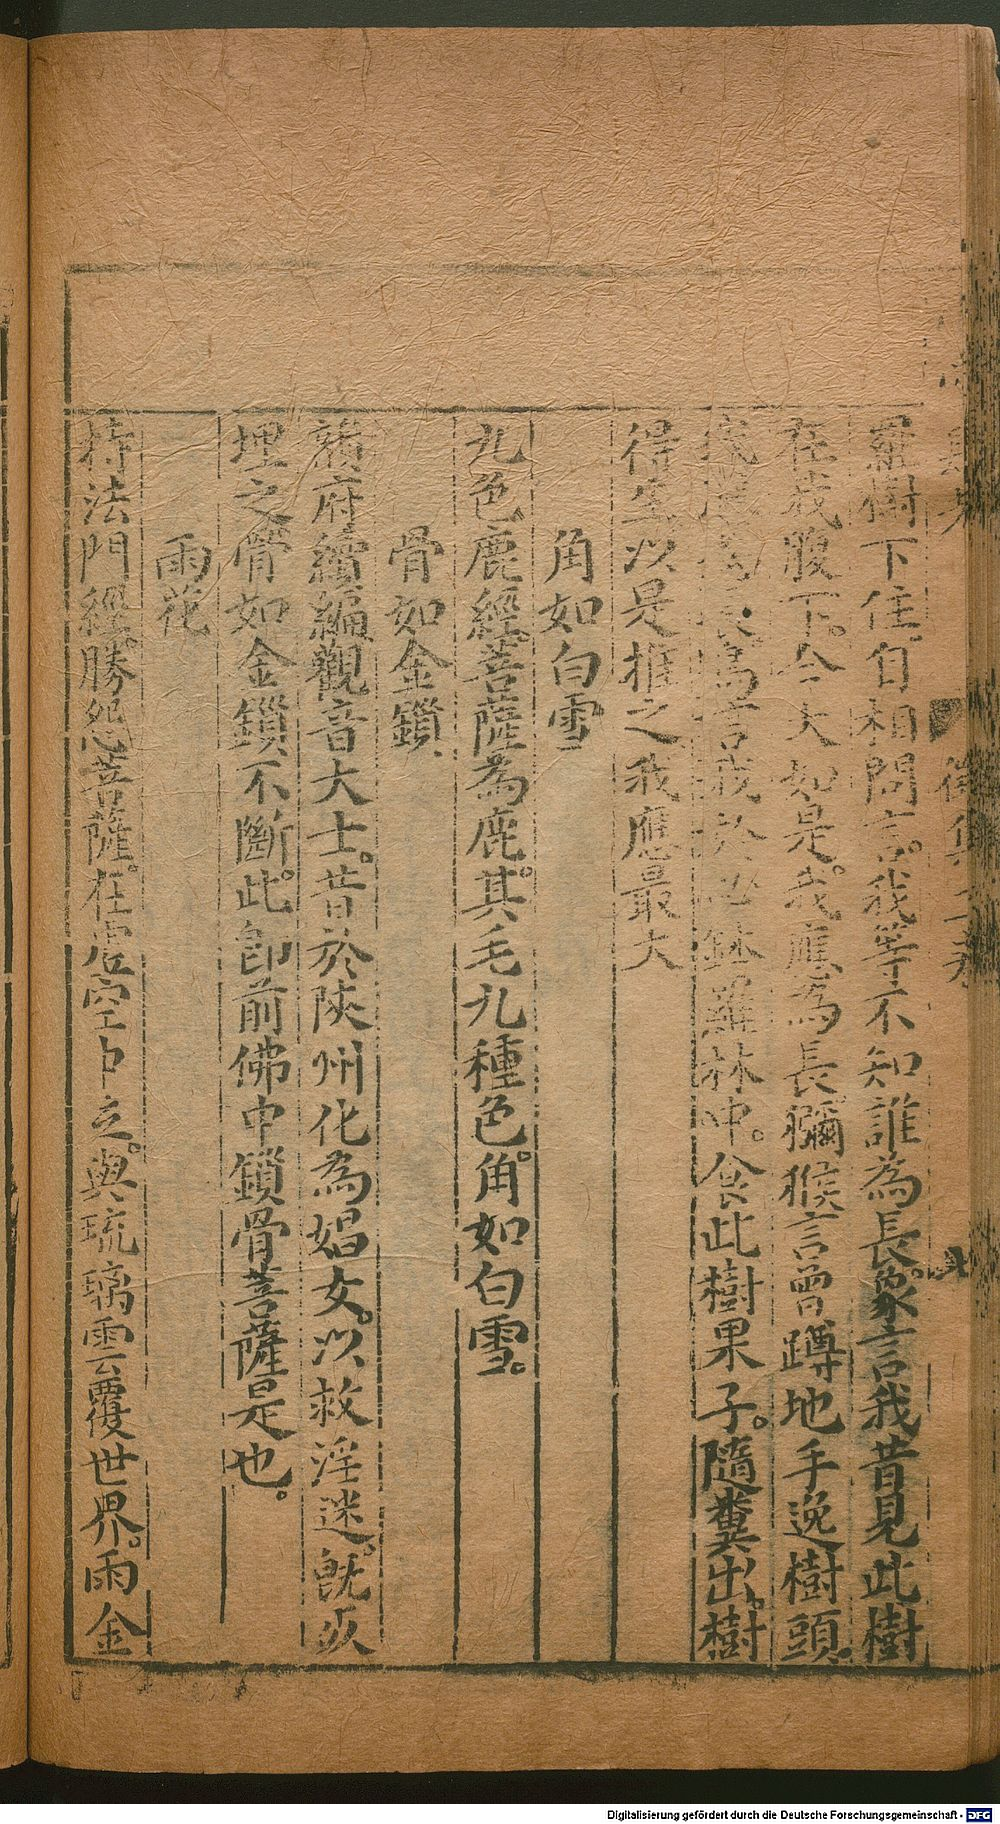 羅樹下住。自相問言。我等不知誰為長。象言我昔見此樹
在我腹下。今大如是。我應為長獼猴言曾蹲地手逸樹頭
我應為長 鳥言我於 鉢羅林中。食此樹果子。隨糞出。樹
得生以是推之我應最大
角如白雪
九色鹿經。菩薩為鹿。其毛九種色。角如白雪。
骨如金鎖
䫂府續編觀音大士。昔於陝州化為娼女。以救淫迷。既死
埋之骨如金鎖不斷。此卽前佛中鎖骨菩薩是也。
雨花
持法門經。勝怨菩薩。在虛空中之。與琉璃雲覆世界。雨金
Digitalisierung gefördert durch die Deutsche Forschungsgemeinschaft - DFG